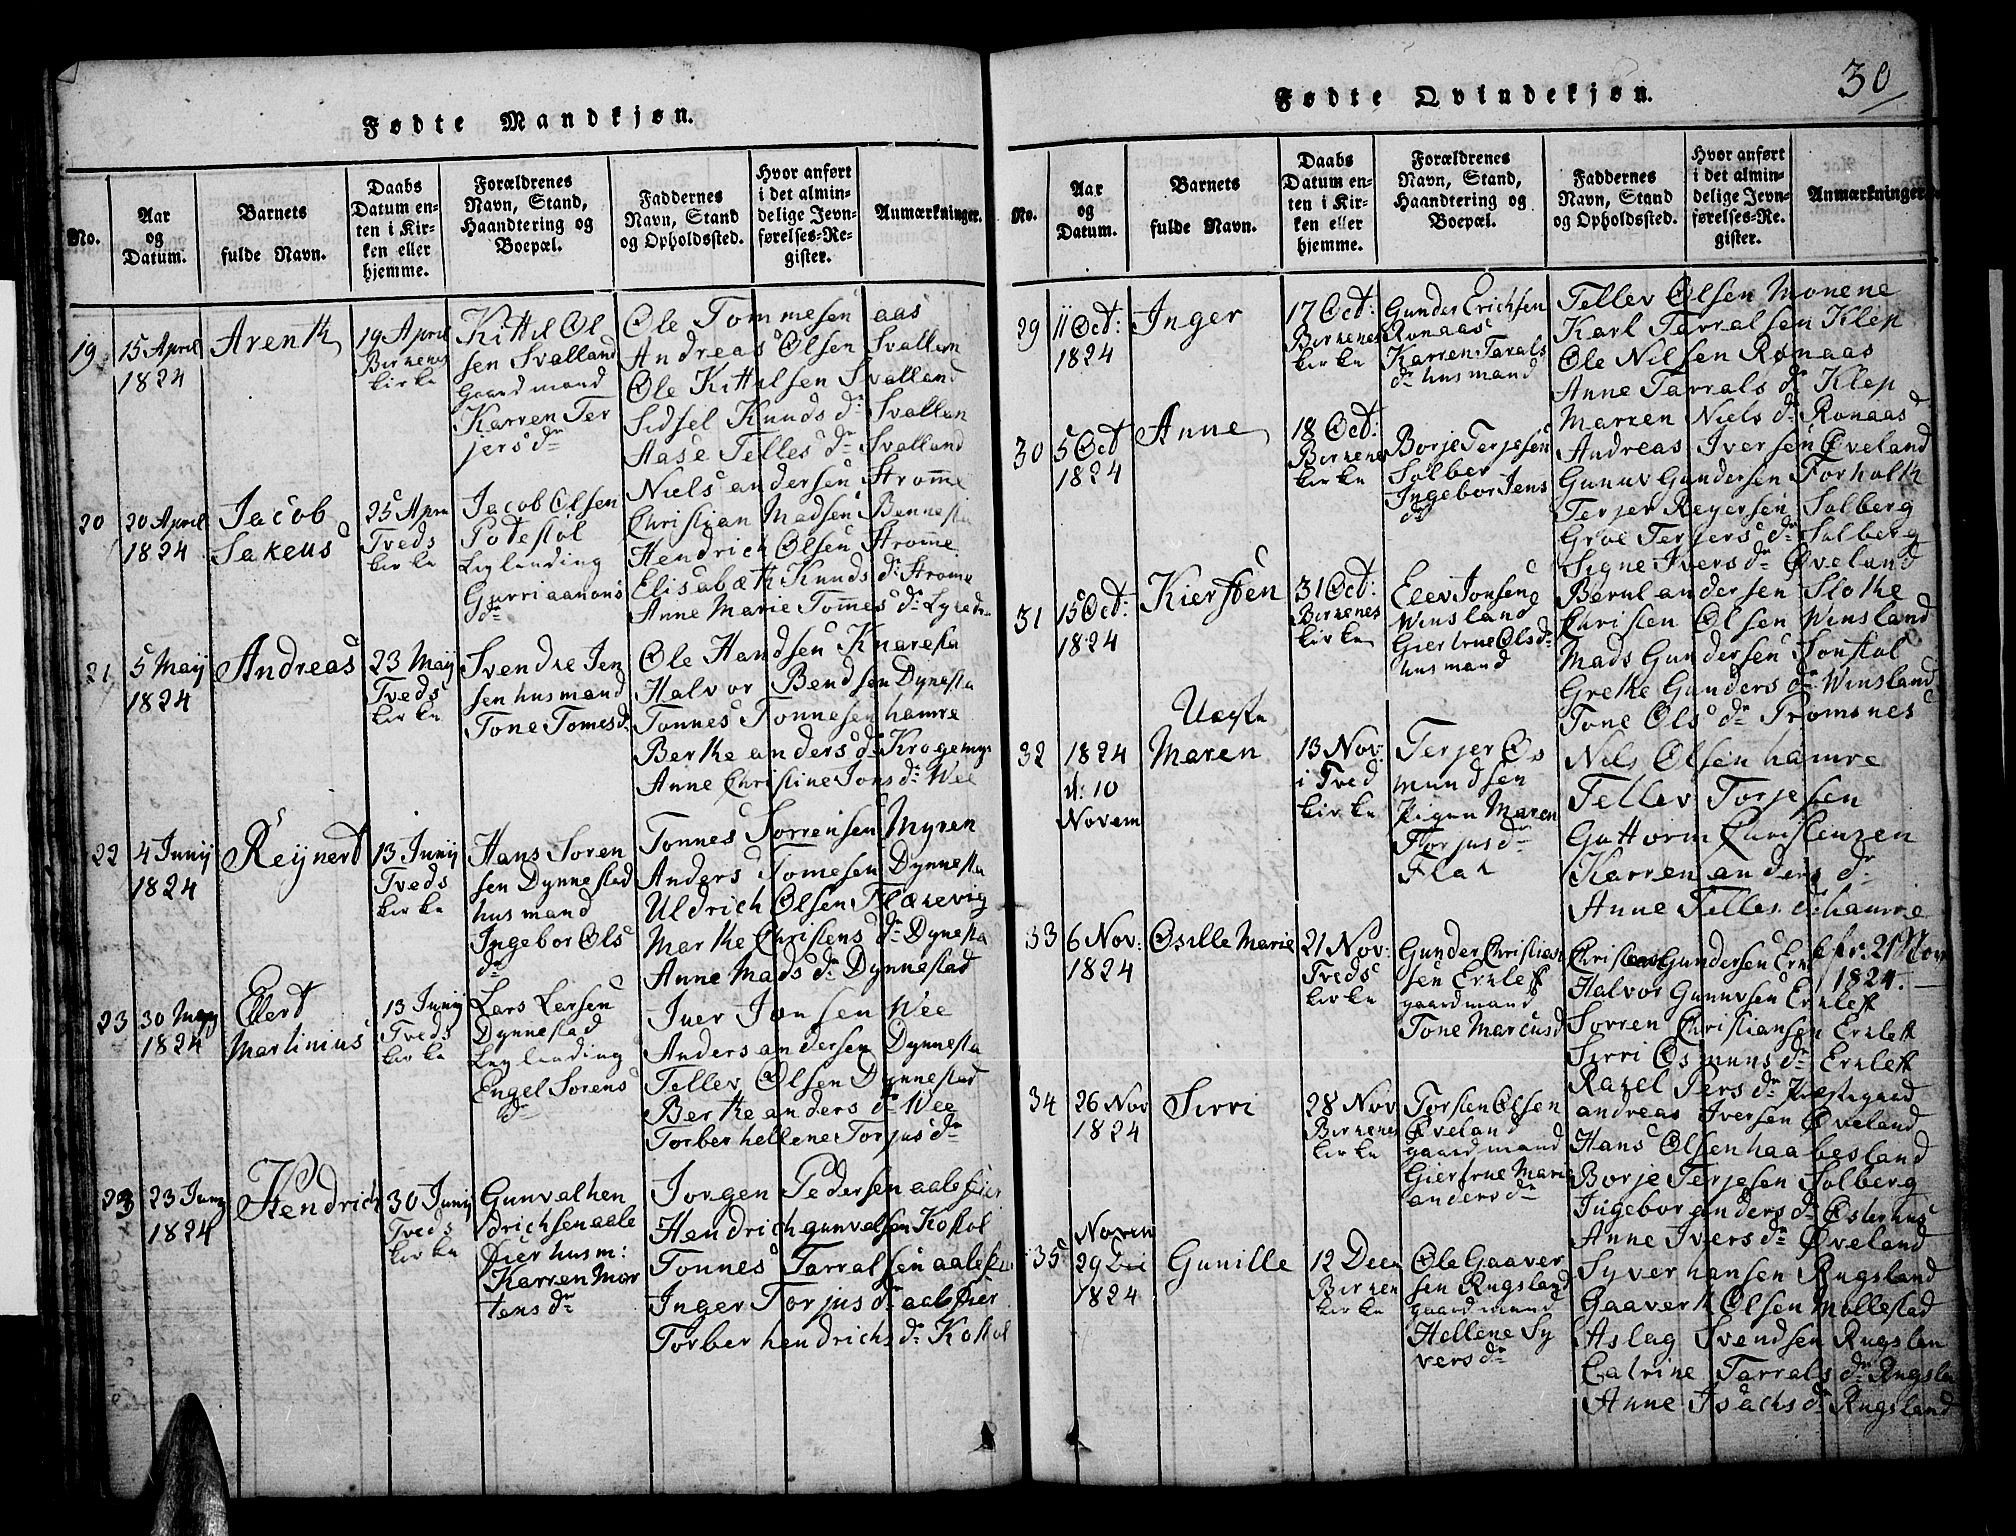 Fødte Mandkjøn.
No.
Aar
og
Datum.
Barnets
fulde Navn.
Daabs
Datum en-
ten i Kir-
ken eller
hjemme.
Forældrenes
Navn, Stand,
Haandtering og
Boepæl.
Faddernes
Navn, Stand
og Opholdssted.
Hvor anført
i det almin-
delige Jevn-
førelses-Re-
gister.
Anmærkninger.
19
15 April
1824
Arenth
19 April
Birkenes
kirke
Kittil Ol
sen Svalland
Gaardmand
Karren Ter
jers dr
Ole Tommesen aas
Andreas Olsen Svallan
Ole Kittilsen Svalland
Sidsel Knuds dr Svallan
Aase Telles dr Svalland
20
20 April
1824
Jacob
Sakeus
25 Apri
Tveds
kirke
Jacob Olsen
Potestol
Leylending
Gurri aanons
dr
Niels andersen Stromme
Christian Madsen Bennesta
Hendrich Olsen Stromme
Elisabæth Knuds dr Strome
Anne Marie Tommes dr
21
5 Maij
1824
Andreas
23 Maij
Tveds
kirke
Svendre Jen
sen husmand
Tone Tomes dr
Ole Handsen Knaresta
Halvor Bendsen Dynesta
Tonnes Tonnesen hamre
Berthe anders dr Krogemyr
Anne Christine Jons dr Wee
22
4 Junij
1824
Reijnert
13 Junij
Tveds
kirke
Hans Soren
sen Dynnestad
husmand
Ingebor Ols
dr
Tonnes Sorrensen Myren
Anders Tomesen Dynnesta
Uldrich Olsen Flakevig
Marthe Christens dr Dynesta
Anne Mads dr Dynnestad
23
30 Maij
1824
Ellert
Martinius
13 Junij
Tveds
kirke
Lars Larsen
Dynnestad
Leylending
Engel Sorens
dr
Iver Jonsen Wee
Anders andersen Dynnesta
Tellev Olsen Dynnestad
Berthe anders dr Wee
Torber hellene Torjus dr
23 Junij
1824
Hendrich
30 Junij
Tveds
kirke
Gunval hen
drichsen aale
fier husm:
Karren Mor
tens dr
Jorgen Pedersen aalefier
Hendrich gunvalsen Kostol
Tonnes Tarralsen aalefier
Inger Torjus dr aalefier
Torber hendrichs dr Kostol
30
Fødte Qvindekjøn.
No.
Aar
og
Datum.
Barnets
fulde Navn.
Daabs
Datum en-
ten i Kir-
ken eller
hjemme.
Forældrenes
Navn, Stand,
Haandtering og
Boepæl.
Faddernes
Navn, Stand
og Opholdssted.
Hvor anført
i det almin-
delige Jevn-
førelses-Re-
gister.
Anmærkninger
29
11 Oct:
1824
Inger
17 Oct:
Birkenes
kirke
Gunder Erichsen
Ronaas
Karren Tarals
dr husmand
Tellev Olsen Monene
Karl Tarralsen Klep
Ole Nilsen Ronaas
Anne Tarrals dr Klep
Marren Niels dr Ronaas
30
5 Oct
1824
Anne
18 Oct:
Birkenes
kirke
Borje Terjesen
Solber
Ingebor Jens
dr
Andreas Iversen Øveland
Gunuv Gundersen Forholth
Terjer Reyersen Solberg
Groe Terjers dr Solberg
Signe Ivers dr Øveland
31
15 Oct:
1824
Kiersten
31 Oct:
Birkenes
kirke
Elev Jonsen
Winsland
Giertrue Ols dr
husmand
Berul andersen Slotke
Christen Olsen Winsland
Mads Gundersen Sonstol
Grethe Gunders dr Winsland
Tone Ols dr Tromsnes
32
1824
d: 10
Novem
Uegte
Maren
13 Nov:
i Tved
kirke
Terjer Os
mundsen
Pigen Maren
Torjus dr
Flak
Nils Olsen hamre
Tellev Torjesen
Guttorm Christenzen
Karren anders dr
Anne Telles dr hamre
33
6 Nov:
1824
Osille Marie
21 Nov:
Tveds
kirke
Gunder Christian
sen Erkleft
gaardmand
Tone Marcus d
Christen Gundersen
Halvor Gunuvsen Erkleft
Sorren Christiansen Erkleft
Sirri Osmuns dr Erkleft
Rakel Pers dr Præstegaard
21 Nov
1824.
34
26 Nov
1824
Sirri
28 Nov
Birkenes
kirke
Torsten Olsen
Øveland
gaardmand
Giertrue Marie
anders dr
andreas Iversen Øveland
Hans Olsen haabesland
Borje Terjesen Solberg
Ingebor anders dr Osterhus
Anne Ivers dr Øveland
35
Novem
29
1824
Gunille
12 Decem
Birken
kirke
Ole Gaaver
sen Rugsland
gaardmand
Hellene Sy
vers dr
Syver hansen Rugsland
Gaaverth Olsen Mollestad
Aslag Svendsen Rugslan
Catrine Tarrals dr Rugsla
Anne Isachs dr Rugsland